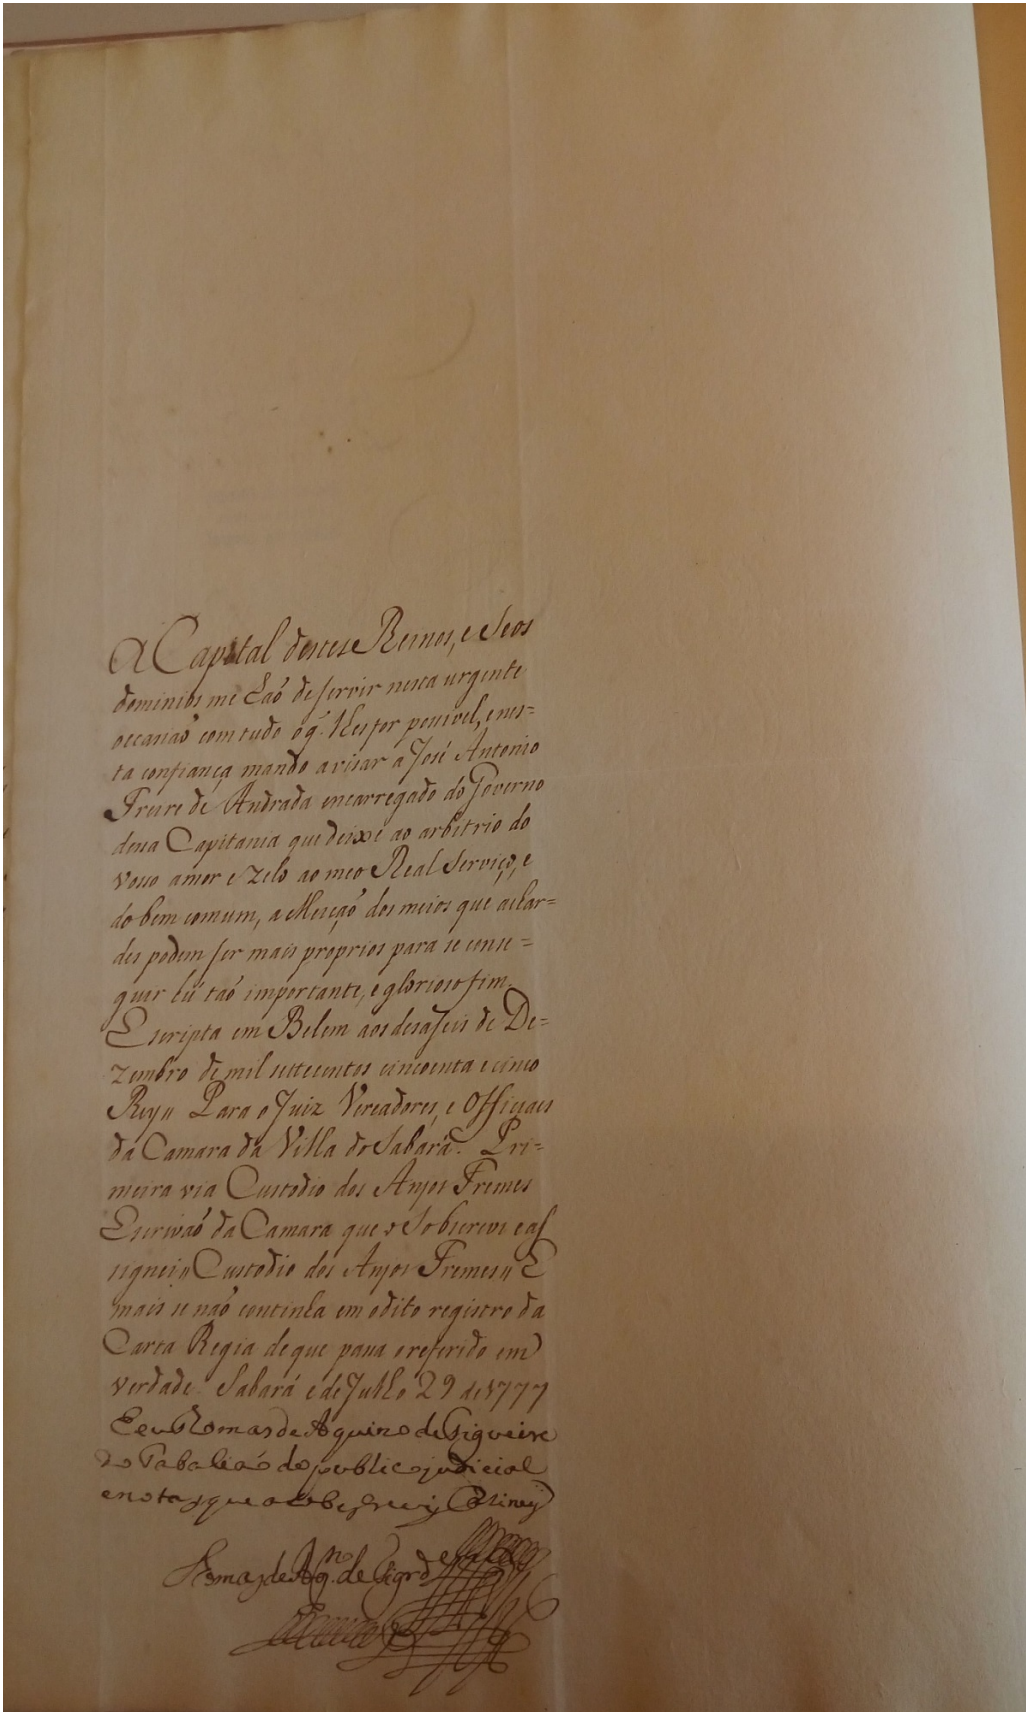 A Capital destes Reinos, e Seos
dominios me haõ de servir nesta urgente
occasiaõ com tudo o q̃. lhes for possivel, e nes=
ta confiança mando avisar a José Antonio
Freire de Andrada encarregado do Governo
dessa Capitania que deixe ao arbitrio do
vosso amor e zelo ao meo Real Serviço, e
do bem comum, a Eleiçaõ dos meios que achar=
des podem ser mais proprios para se conse=
guir hũ taõ importante, e glorioso fim.
Escripta em Belem aos desaseis de De=
zembro de mil settecentos cincoenta e cinco
Rey,, Para o Juiz Vereadores, e Officiaes
da Camara da Villa do Sabará. Pri=
meira via Custodio dos Anjos Fremes
Escrivaõ da Camara que o Sobscrevi e as
signei,, Custodio dos Anjos Fremes,, E
mais se naõ continha em o dito registro da
Carta Regia de que passa o referido em
verdade. Sabará e de Julho 29 de 1777
E eu Thomas de Aquino de Figueire
do Tabaliaõ do publico judicial
e notas que o sobescrevy e asiney
Thomas de Aq.no de Figrdo